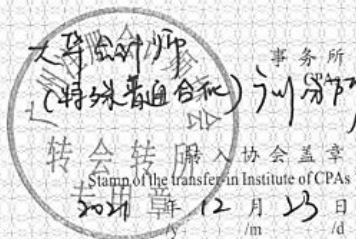 大华会计师
事务所
CPAs
(特殊普通合伙)广州分所
转会转所
专用章
转入协会盖章
Stamp of the transfer-in Institute of CPAs
2021 年 12 月 23 日
/y /m /d